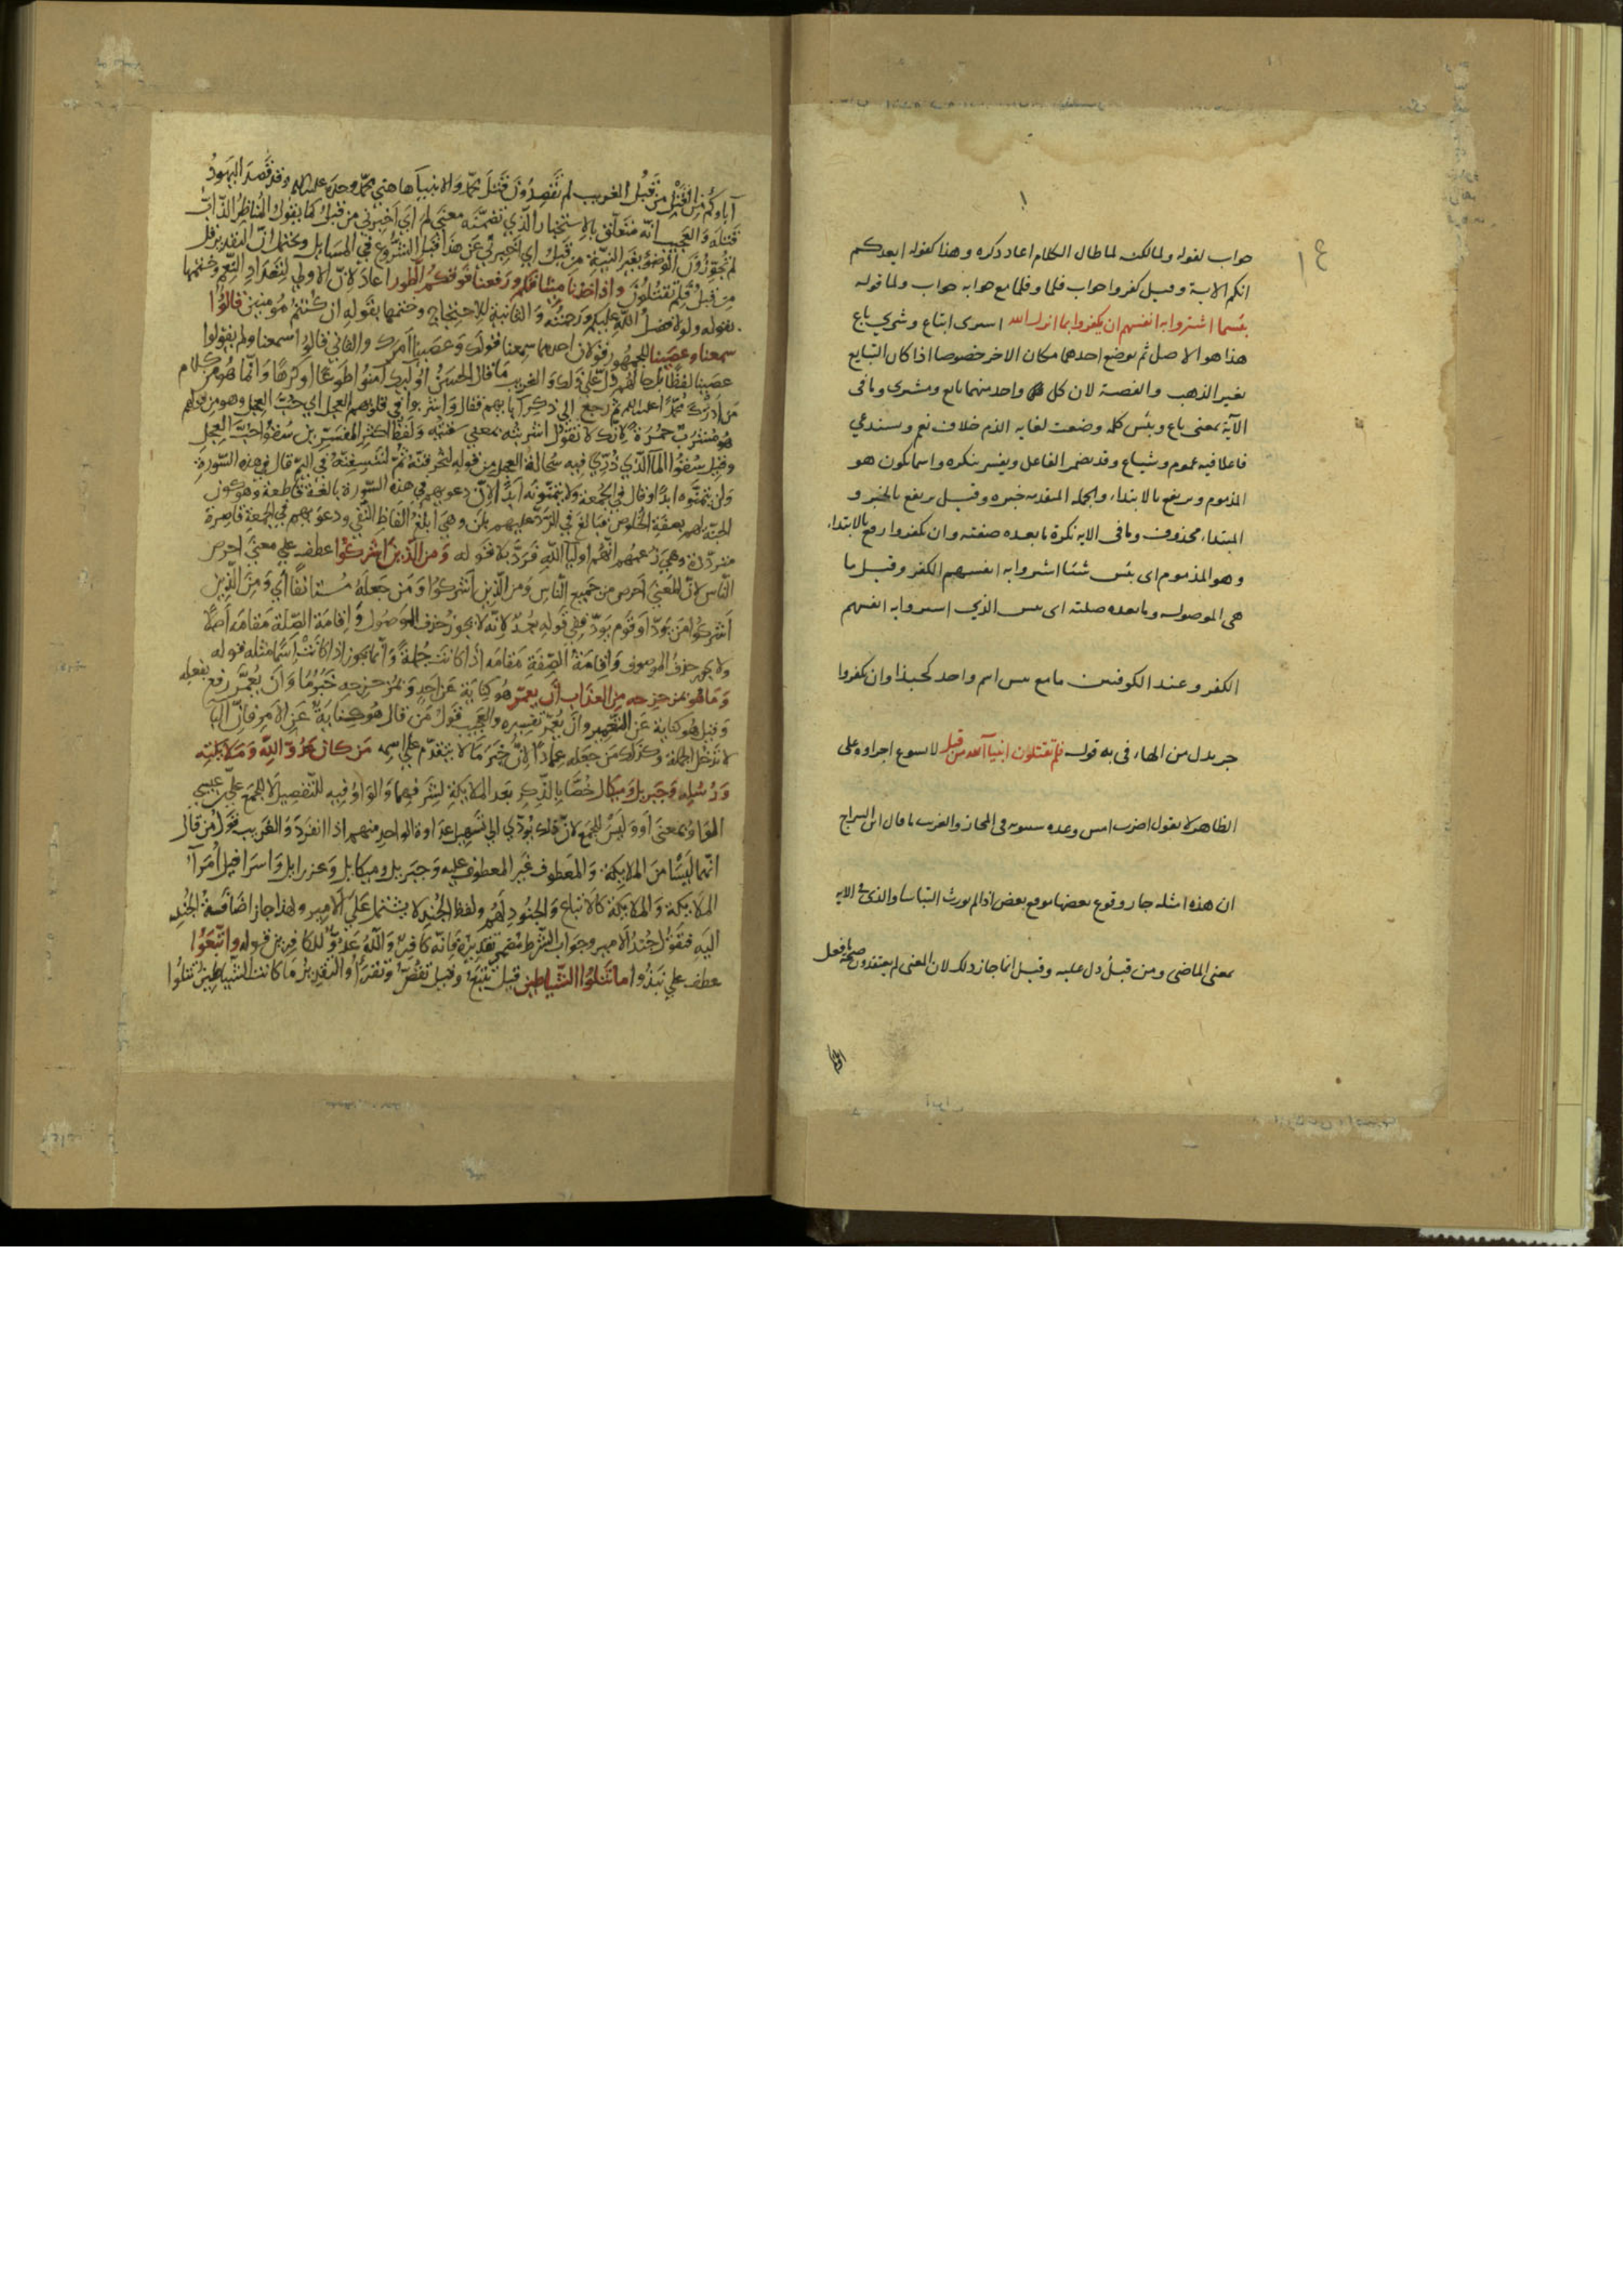 ١٤
جواب لقوله ولما لكن لما طال الكلام اعاد ذكره وهذا كقوله ايعدكم
انكم الاية وقيل كفروا جواب فلما وفلما مع جوابه جواب ولما قوله
بئسما اشتروا به انفسهم ان يكفروا بما انزل الله اشترى ابتاع وشرى باع
هذا هو الاصل ثم يوضع احدهما مكان الاخر خصوصا اذا كان التبايع
بغير الذهب والفضة لان كل واحد منهما بايع ومشترى وما في
الآية بمعنى باع وبئس كلمه وضعت لغاية الذم خلاف نعم ويستدعي
فاعلا فيه عموم وشياع وقد يضمر الفاعل ويفسر بنكره واسما يكون هو
المذموم ويرتفع بالابتداء والجملة المتقدمه خبره وقيل يرتفع بالخبر و
المبتداء محذوف وما في الايه نكرة ما بعده صفته وان يكفروا رفع بالابتداء
وهو المذموم اى بئس شئا اشتروا به انفسهم الكفر وقيل ما
هى الموصوله وما بعده صلته اى بئس الذي اشتروا به انفسهم
الكفر وعند الكوفيين ما مع بئس اسم واحد كحبذا وان يكفروا
جر بدل من الهاء فى به قوله فلم تقتلون انبياء الله من قبل لا يسوغ اجراوه على
الظاهر لا يقول اضرب امس وعده سيبويه في المجاز والغريب ما قال ابن السراج
ان هذه امثله جاز وقوع بعضها موقع بعض اذا لم يورث التباسا والذى فى الايه
بمعنى الماضى ومن قبل دل عليه وقيل انما جاز ذلك لان المعنى لم يعتقدون صحة ما فعل
آباوكم من القتل من قبل الغريب لم تقصدون قتل محمد والانبياء هاهنى محمد وحده عليه السلم وقد قصد اليهود
قتله والعجيب انه متعلق بالاستخبار الذي تضمنه معنى لم اي اخبرني من قبلك كما يقول المناظر
لم تجوزون الوضو بغير النية من قبلك اي اخبرني عن هذا قبل الشروع في المسايل ويحتمل ان التقدير قل
من قبل فلم تقتلون واذ اخذنا ميثاقكم ورفعنا فوقكم الطور اعاد لان الاولي لتعداد النعم وختمها
بقوله ولولا فضل الله عليكم ورحمته والثانية للاحتجاج وختمها بقوله ان كنتم مومنين قالوا
سمعنا وعصينا للجمهور قولان احدهما سمعنا قولك وعصينا امرك والثاني قالوا سمعنا ولم يقولوا
عصينا لفظا بل حالهم دل على ذلك والغريب ما قال الحسن اوليك آمنوا طوعا او كرها وانما هو من كلام
من ادرك محمدا عليه السلم ثم رجع الي ذكر آبايهم فقال واشربوا في قلوبهم العجل اي حب العجل وهو من قولهم
هو مشرب حمرة لانك لا تقول اشربته بمعنى سقيته ولفظ اكثر المفسرين سقوا حب العجل
وقيل سقوا الما الذي ذري فيه سحالة العجل من قوله لنحرقنه ثم لننسفنه في اليم قال في هذه السورة
ولن يتمنوه ابدا وقال في الجمعة ولا يتمنونه ابدا لان دعويهم في هذه السورة بالغة قاطعة وهو كون
الجنة لهم بصفة الخلوص فبالغ في الرد عليهم بلن وهي ابلغ الفاظ النفي ودعويهم في الجمعة قاصرة
مترددة وهي زعمهم انهم اوليا الله فرد بلا قوله ومن الذين اشركوا عطف علي معنى احرص
الناس لان المعنى احرص من جميع الناس ومن الذين اشركوا ومن جعله مستانفا اي ومن الذين
اشركوا من يود او قوم يود ففي قوله بعد لانه لا يجوز حذف الموصول واقامة الصلة مقامه اصلا
ولا يجوز حذف الموصوف واقامة الصفة مقامه اذا كانت جملة وانما يجوز اذا كانت اسما مثله قوله
وما هو بمزحزحه من العذاب ان يعمر هو كناية عن احد وبمزحزحه خبر ما وان يعمر رفع بفعله
وقيل هو كناية عن التعمير وان يعمر تفسيره والعجيب قول من قال هو كناية عن الامر فان البا
لا تدخل الجملة وكذلك من جعله عمادا لان خبر ما لا يتقدم على اسمه من كان عدوا لله وملايكته
ورسله وجبريل وميكال خصا بالذكر بعد الملايكة لشرفهما والواو فيه للتفصيل لا للجمع علي بن عيسي
الواو بمعنى او وليس للجمع لان ذلك يؤدي الى تسهيل عداوة الواحد منهم اذا انفرد والغريب قول من قال
انهما ليسا من الملايكة والمعطوف غير المعطوف عليه وجبريل وميكايل وعزرايل واسرافيل امرآء
الملايكة والملايكة كالاتباع والجنود لهم ولفظ الجند لا يشتمل على الامير ولهذا جاز اضافة الجند
اليه فتقول جند الامير وجواب الشرط مضمر تقديره فانه كافر والله عدو للكافرين قوله واتبعوا
عطف علي نبذوا ما تتلوا الشياطين قيل تتبع وقيل تقص وتقرأ والتقدير ما كانت الشياطين تتلوا